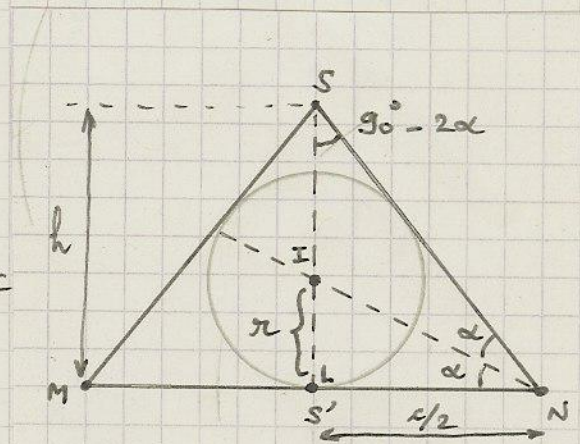 S
90° - 2α
h
I
r
α
α
M
L
S'
N
c/2